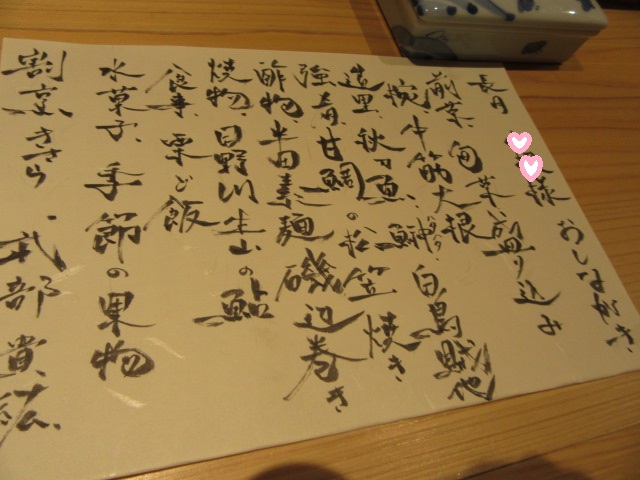 おしながき
様
前菜、旬菜盛り込み
椀、大根
造里、秋の魚
強肴、甘鯛の松笠焼き
酢物、半田素麺 磯辺巻き
焼物、日野川生山の鮎
食事、栗ご飯
水菓子、季節の果物
割烹きさら 武部貴紘